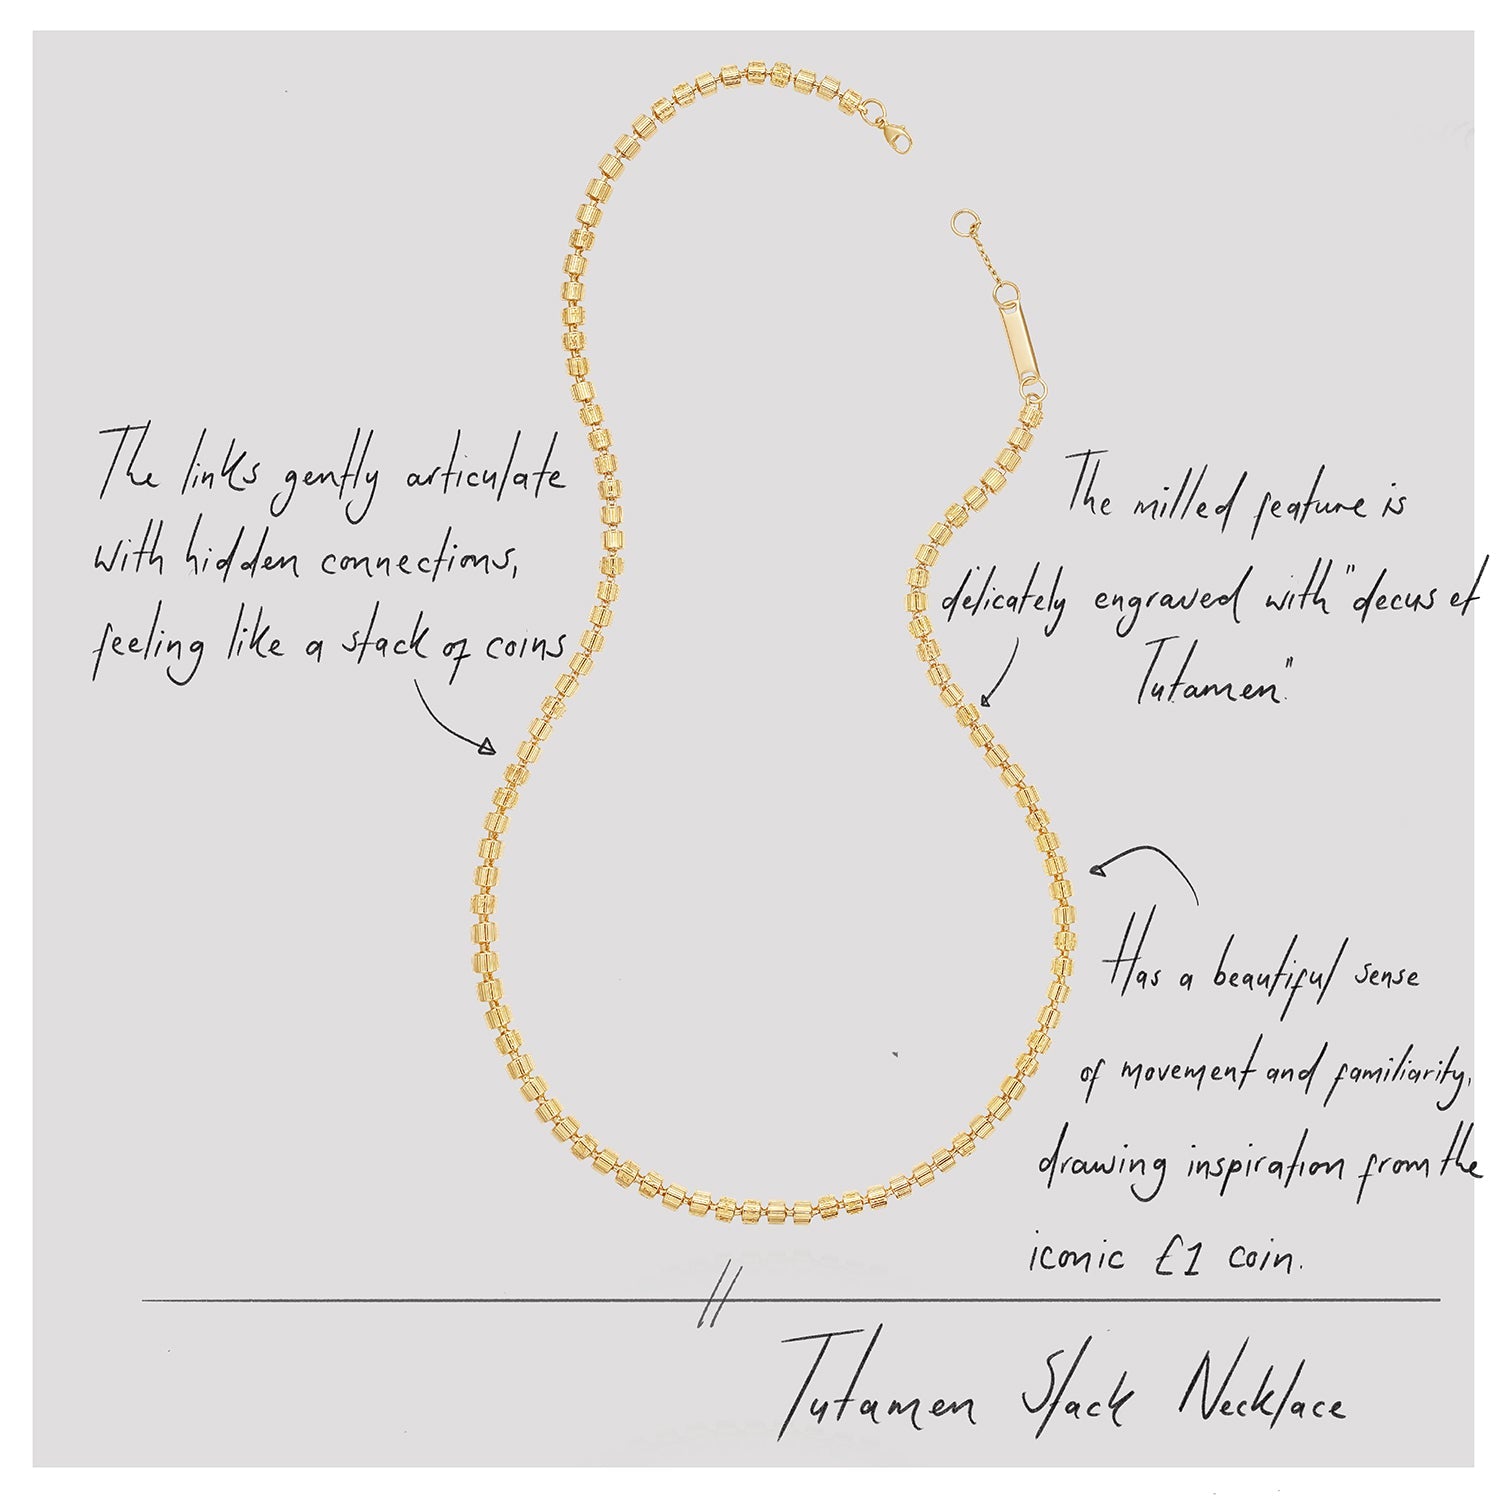 The links gently articulate
with hidden connections,
feeling like a stack of coins
The milled feature is
delicately engraved with "decus et
Tutamen."
Has a beautiful sense
of movement and familiarity,
drawing inspiration from the
iconic £1 coin.
Tutamen Stack Necklace